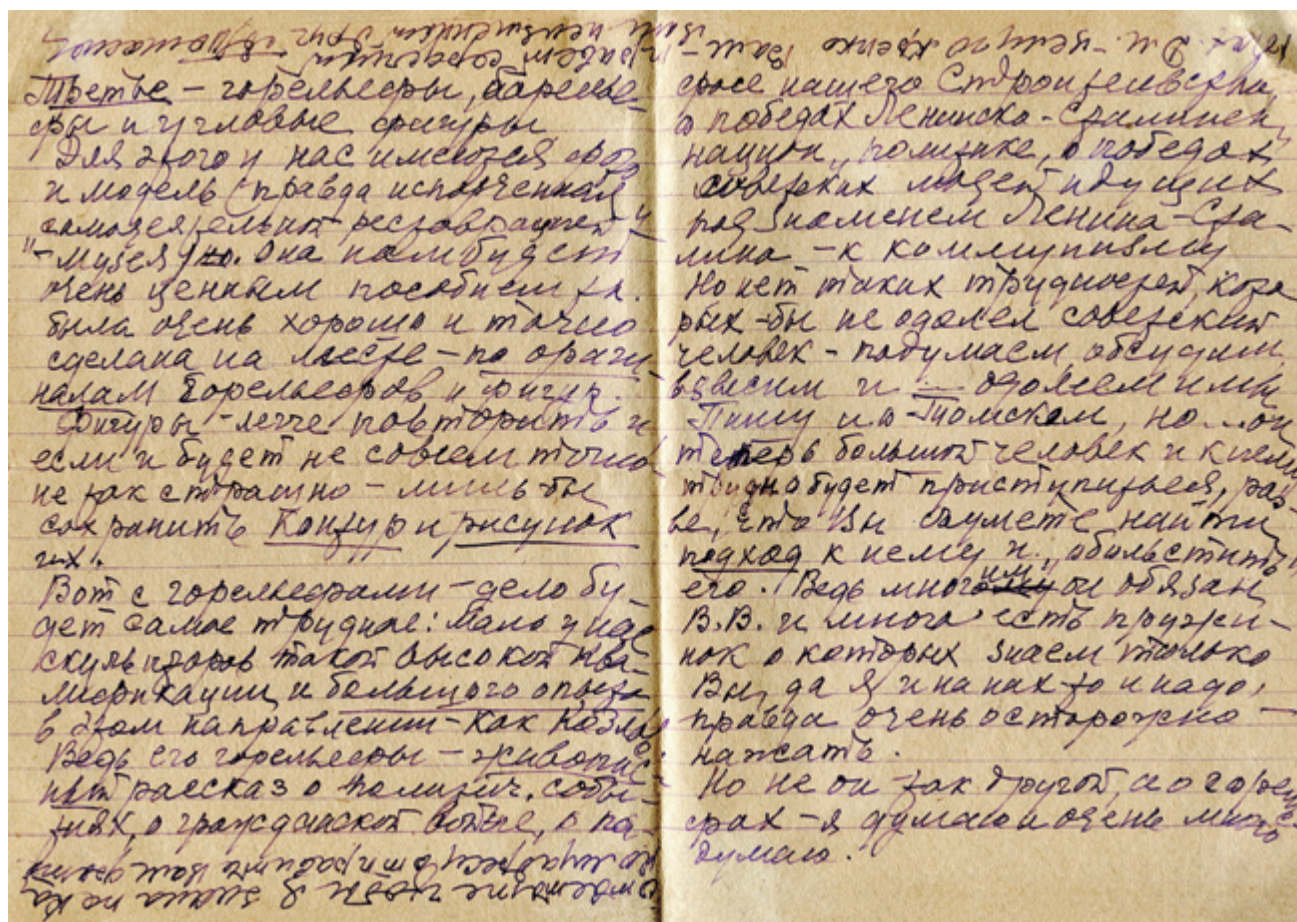 Третье – горельефы, барелье-
фы и угловые фигуры
Для этого у нас имеются фото
и модель (правда испорченная
самодеятельной реставрацией
"-музея"). Она нам будет
очень ценным пособием т.к.
была очень хорошо и точно
сделана на месте – по ориги-
налам борельефов и фигур.
Фигуры – легче повторить и
если и будет не совсем точно
не так страшно – лишь бы
сохранить контур и рисунок
их.
Вот с горельефами – дело бу-
дет самое трудное: Мало у нас
скульпторов такой высокой ква-
лификации и большого опыта
в этом направлении – как Козлов
Ведь его горельефы – живопис-
ный рассказ о политич. собы-
тиях, о гражданской войне, о па-
фосе нашего строительства,
о победах Ленинско-Сталинск.
национ. политике, о победах
советских людей идущих
под знаменем Ленина-Ста-
лина – к коммунизму
Но нет таких трудностей, кото
рых-бы не одолел советский
человек – подумаем, обсудим,
взвесим и – одолеем или
Пишу и о Томском, но... он
теперь большой человек и к нему
трудно будет приступиться, раз-
ве, что Вы сумеете найти
подход к нему и "обольстить"
его. Ведь многим он обязан
В.В. и много есть пружи-
нок о которых знаем только
Вы, да я и на них-то и надо,
правда очень осторожно –
нажать.
Но не он так другой, а о горелье-
фах – я думаю и очень много
думаю.